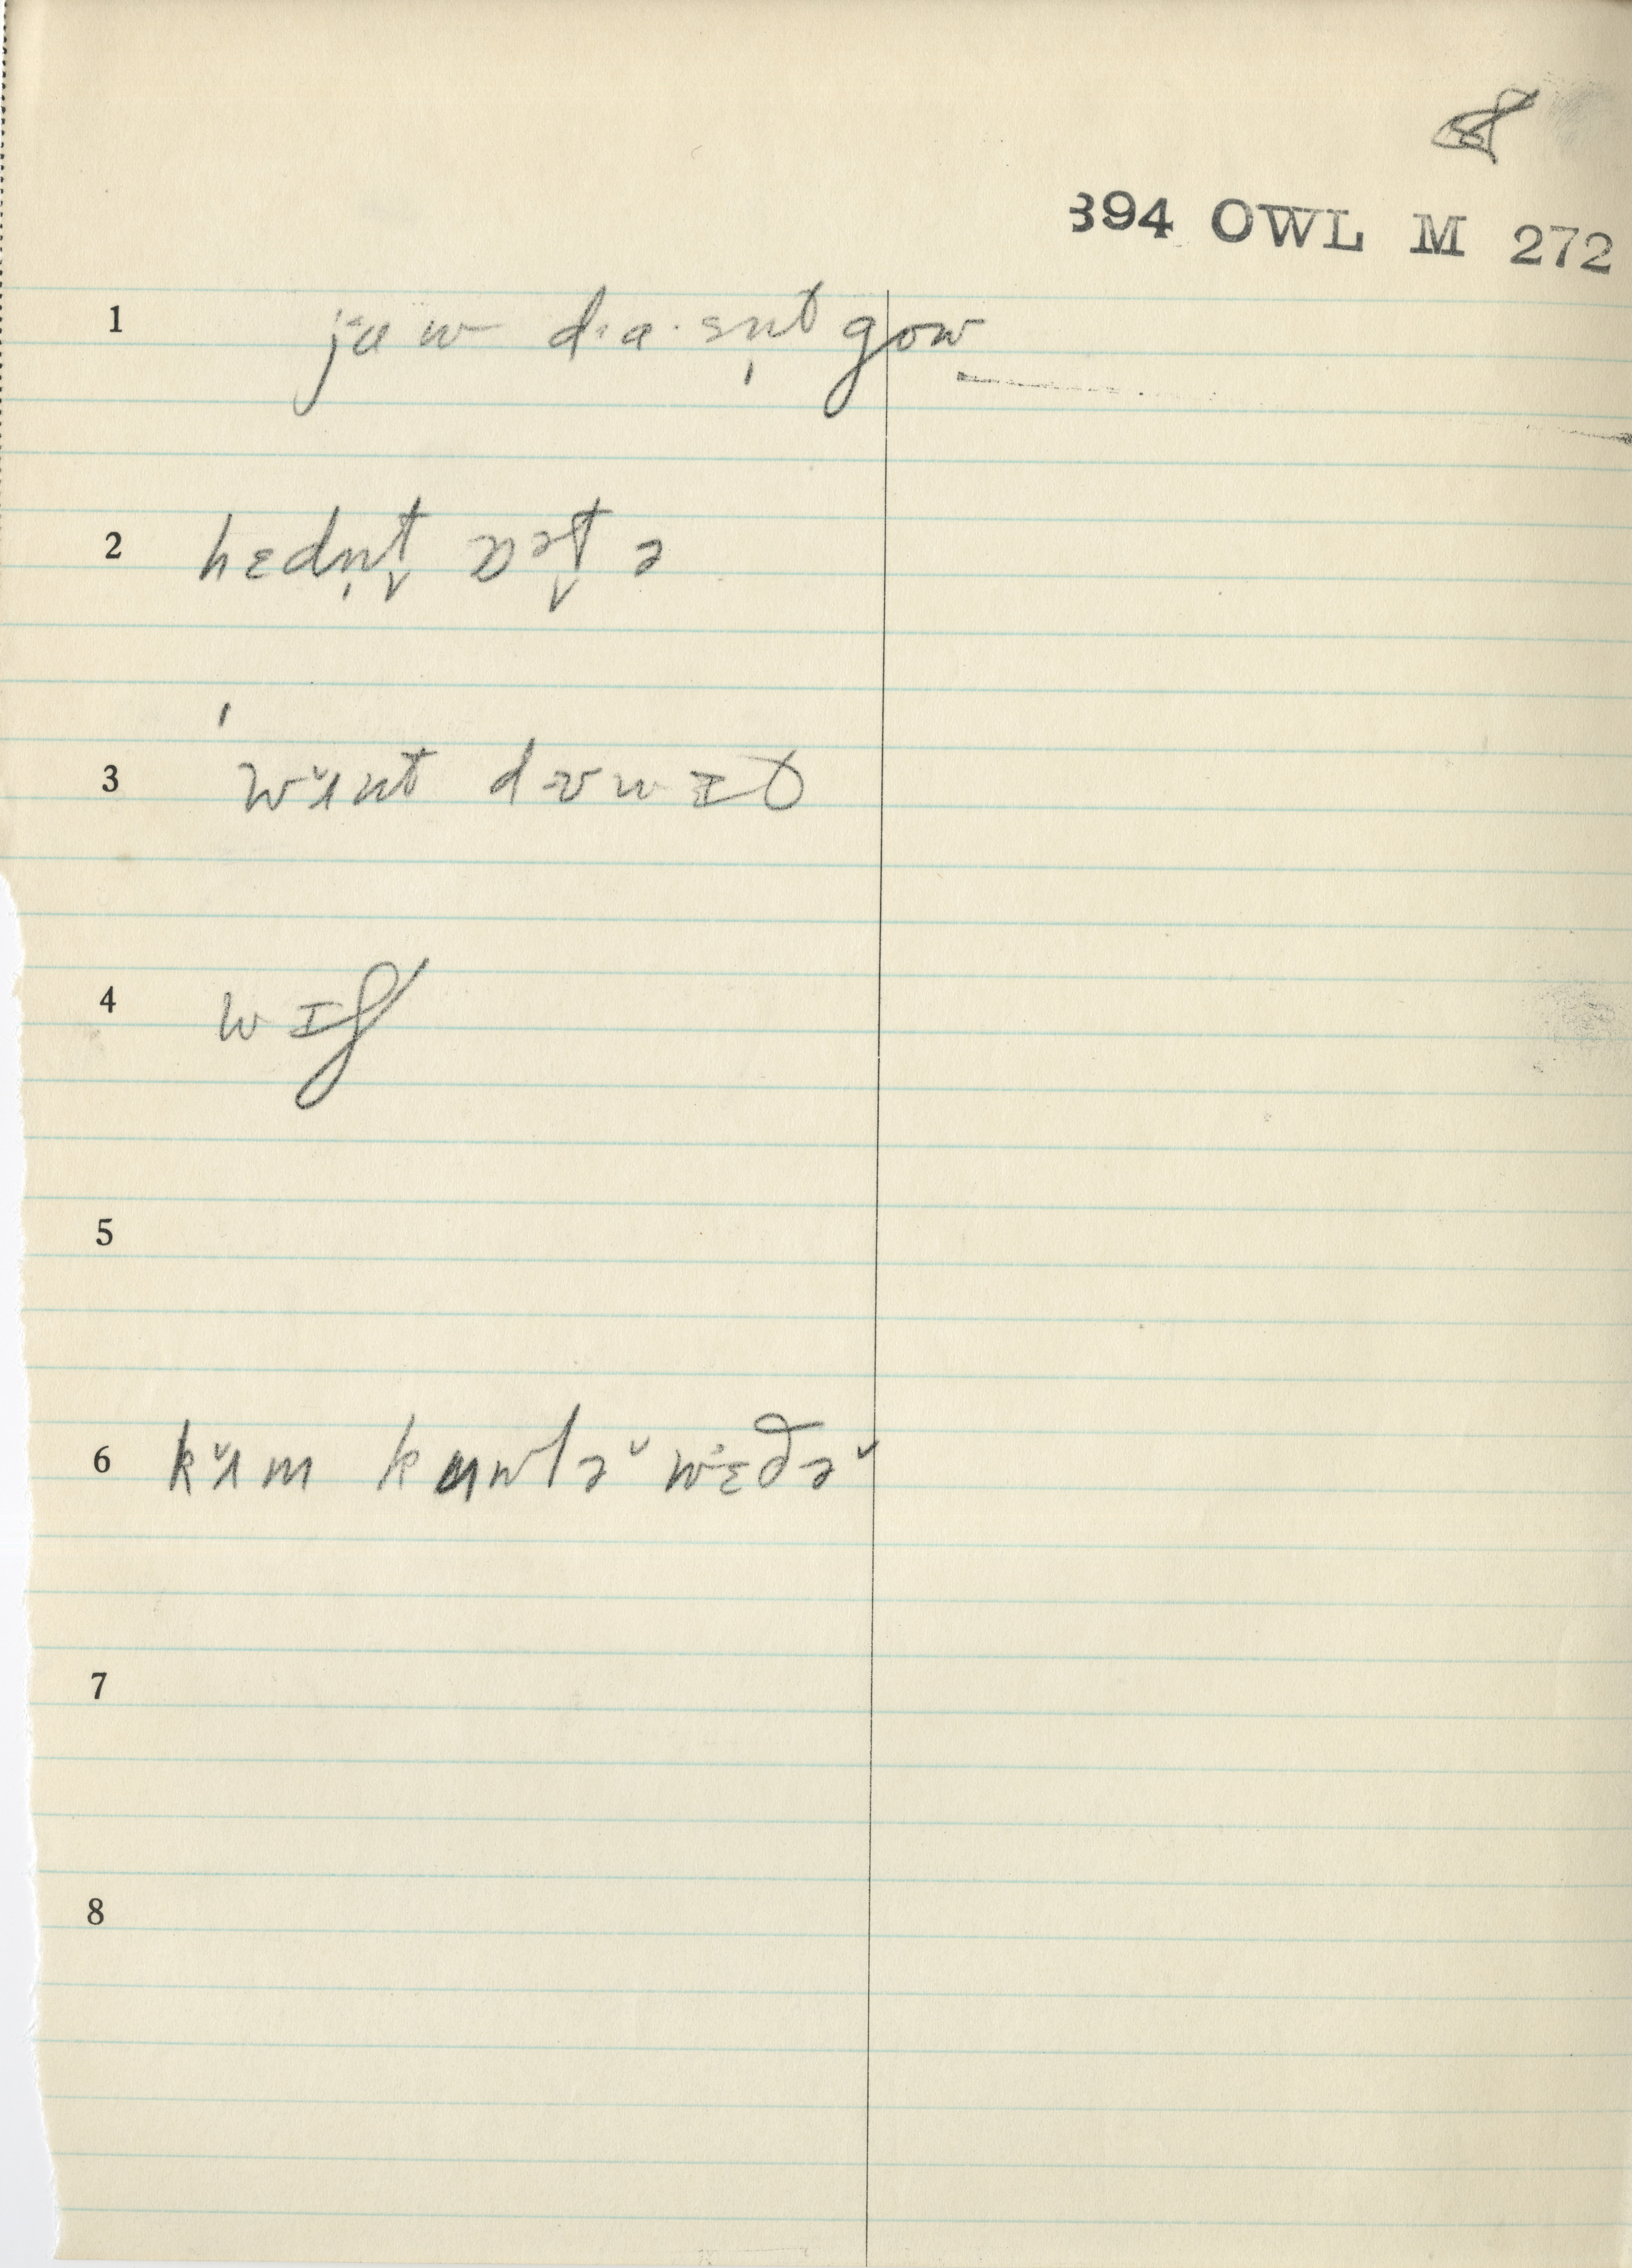 394 OWL M 272
1 jɑw dɑsn̩t gow
2 hɛdn̩t̬ ɒət̬ ə
3 wʌnt duw ɪt
4 wɪf
5
6 kʌm kɑwlə wɛðə
7
8